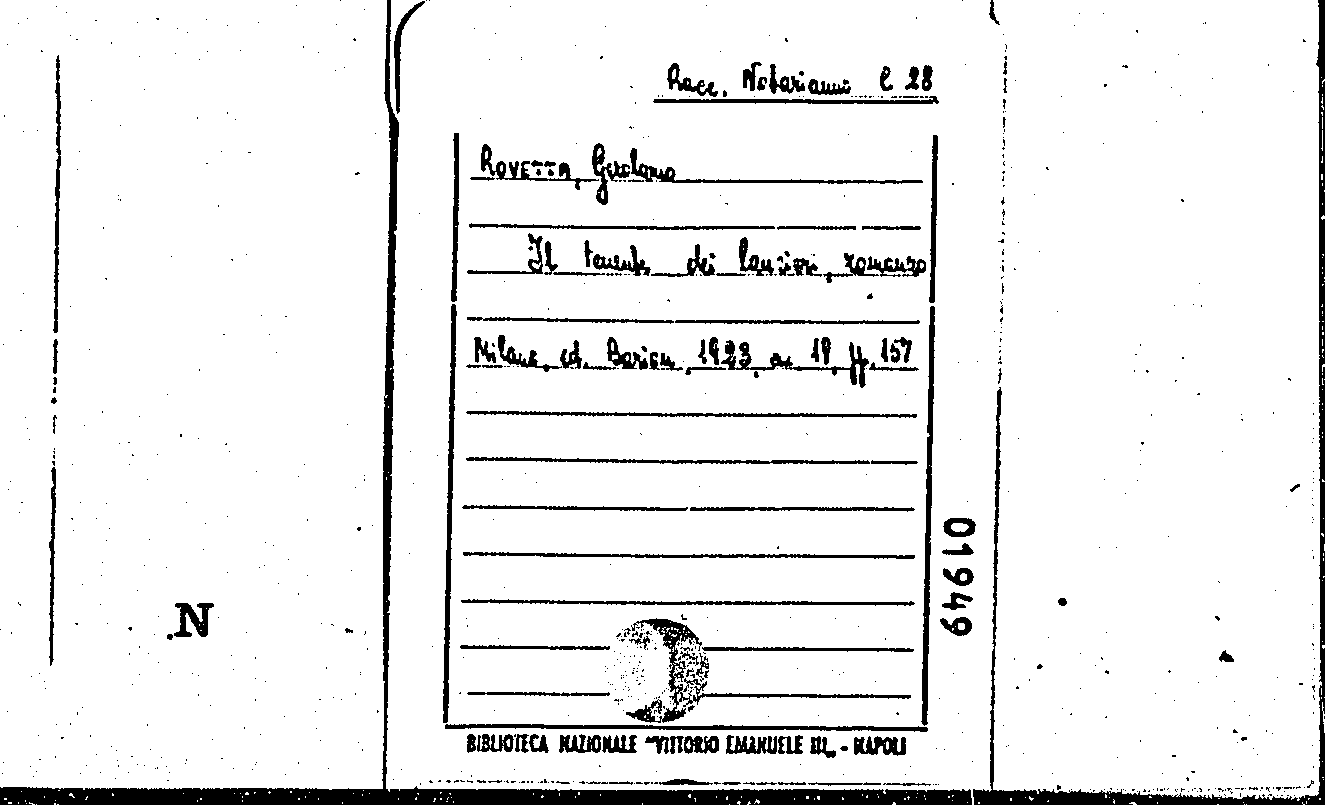 Racc. Notarianni C 28
ROVETTA, Gerolamo
Il tenente dei lancieri, romanzo
Milano, ed. Barion, 1923, in 18, pp. 157
01949
N
BIBLIOTECA NAZIONALE "VITTORIO EMANUELE III„ - NAPOLI